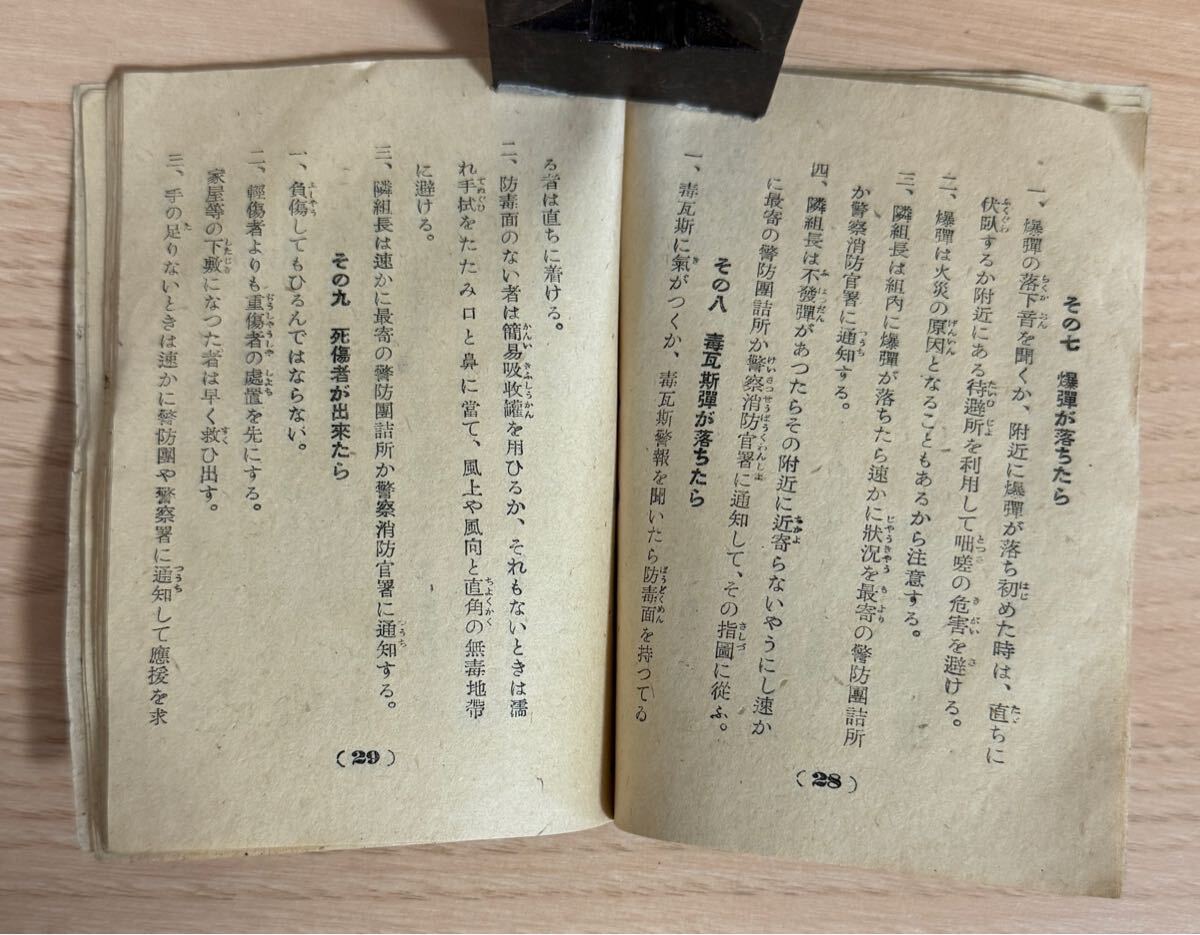 その七　爆彈が落ちたら
一、爆彈の落下音を聞くか、附近に爆彈が落ち初めた時は、直ちに
伏臥するか附近にある待避所を利用して咄嗟の危害を避ける。
二、爆彈は火災の原因となることもあるから注意する。
三、隣組長は組內に爆彈が落ちたら速かに狀況を最寄の警防團詰所
か警察消防官署に通知する。
四、隣組長は不發彈があつたらその附近に近寄らないやうにし速か
に最寄の警防團詰所か警察消防官署に通知して、その指圖に從ふ。
その八　毒瓦斯彈が落ちたら
一、毒瓦斯に氣がつくか、毒瓦斯警報を聞いたら防毒面を持つてゐ
(28)
る者は直ちに着ける。
二、防毒面のない者は簡易吸收罐を用ひるか、それもないときは濡
れ手拭をたたみ口と鼻に當て、風上や風向と直角の無毒地帶
に避ける。
三、隣組長は速かに最寄の警防團詰所か警察消防官署に通知する。
その九　死傷者が出來たら
一、負傷してもひるんではならない。
二、輕傷者よりも重傷者の處置を先にする。
家屋等の下敷になつた者は早く救ひ出す。
三、手の足りないときは速かに警防團や警察署に通知して應援を求
(29)